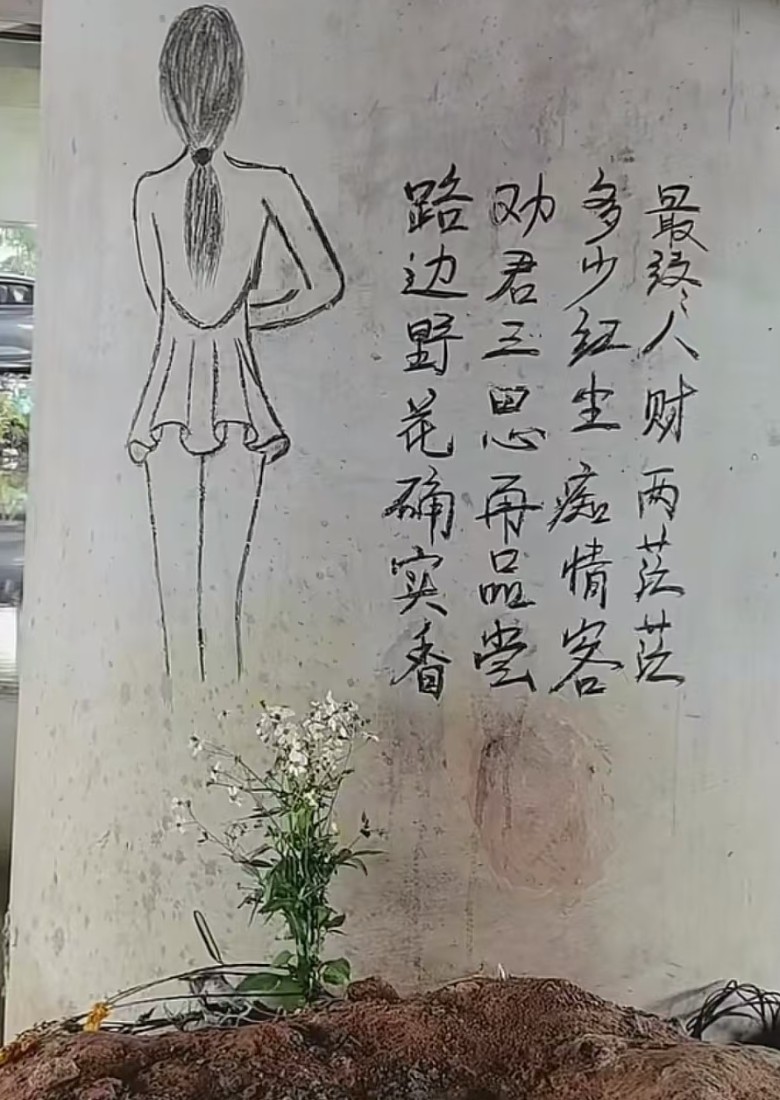 路边野花确实香
劝君三思再品尝
多少红尘痴情客
最终人财两茫茫